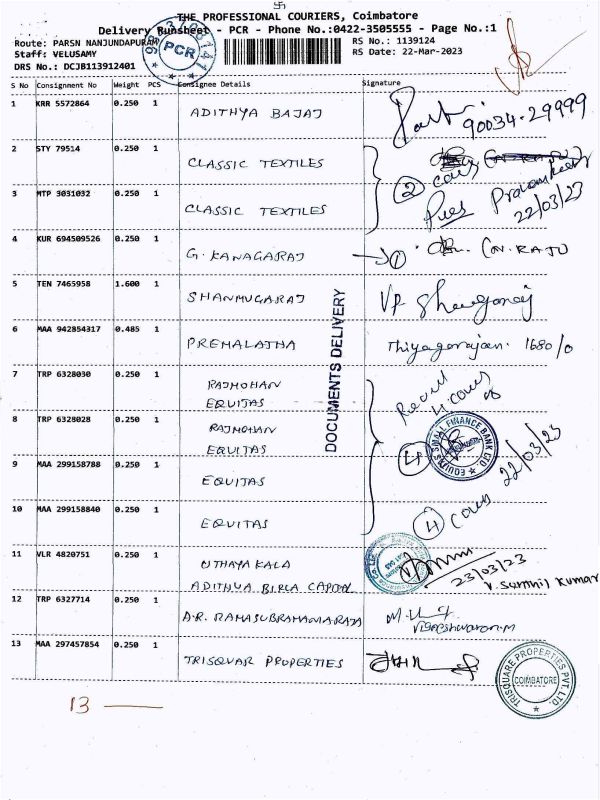 THE PROFESSIONAL COURIERS, Coimbatore
Delivery Runsheet - PCR - Phone No.:0422-3505555 - Page No.:1
Route: PARSN NANJUNDAPURAM
RS No.: 1139124
Staff: VELUSAMY
RS Date: 22-Mar-2023
DRS No.: DCJB113912401
PCR
S No Consignment No Weight PCS Consignee Details Signature
1 KRR 5572864 0.250 1 ADITHYA BAJAJ 90034-29999
2 STY 79514 0.250 1 CLASSIC TEXTILES
3 MTP 3031032 0.250 1 CLASSIC TEXTILES 2 22/03/23
4 KUR 694509526 0.250 1 G. KANAGARAJ 1 (N. RAJU
5 TEN 7465958 1.600 1 SHANMUGARAJ
6 MAA 942854317 0.485 1 PREMALATHA Thiyagarajan. 1680/0
DOCUMENTS DELIVERY
7 TRP 6328030 0.250 1 RAJMOHAN
EQUITAS
8 TRP 6328028 0.250 1 RAJMOHAN
EQUITAS
EQUITAS SMALL FINANCE BANK LTD.
9 MAA 299158788 0.250 1 EQUITAS 4 22/03/23
10 MAA 299158840 0.250 1 EQUITAS 4
11 VLR 4820751 0.250 1 UTHAYAKALA
ADITHYA BIRLA CAPITAL
23/03/23
12 TRP 6327714 0.250 1 A.R. RAMASUBRAMANARAJA
13 MAA 297457854 0.250 1 TRISQUAR PROPERTIES
TRISQUARE PROPERTIES PVT. LTD.
COIMBATORE
13